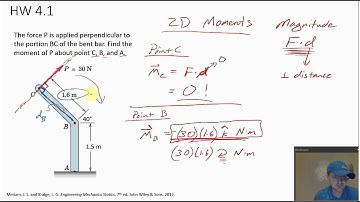 HW 4.1
The force P is applied perpendicular to
the portion BC of the bent bar. Find the
moment of P about point C, B, and A.
P = 30 N
C
1.6 m
40°
B
1.5 m
A
Meriam, J. L. and Kraige, L. G. Engineering Mechanics Statics. 7th ed. John Wiley & Sons. 2012.
2D Moments
Point C
M_C = F·d → 0
= 0!
Point B
M_B = -(30)(1.6) k̂ N·m
(30)(1.6) ↻ N·m
Magnitude
F·d
⊥ distance